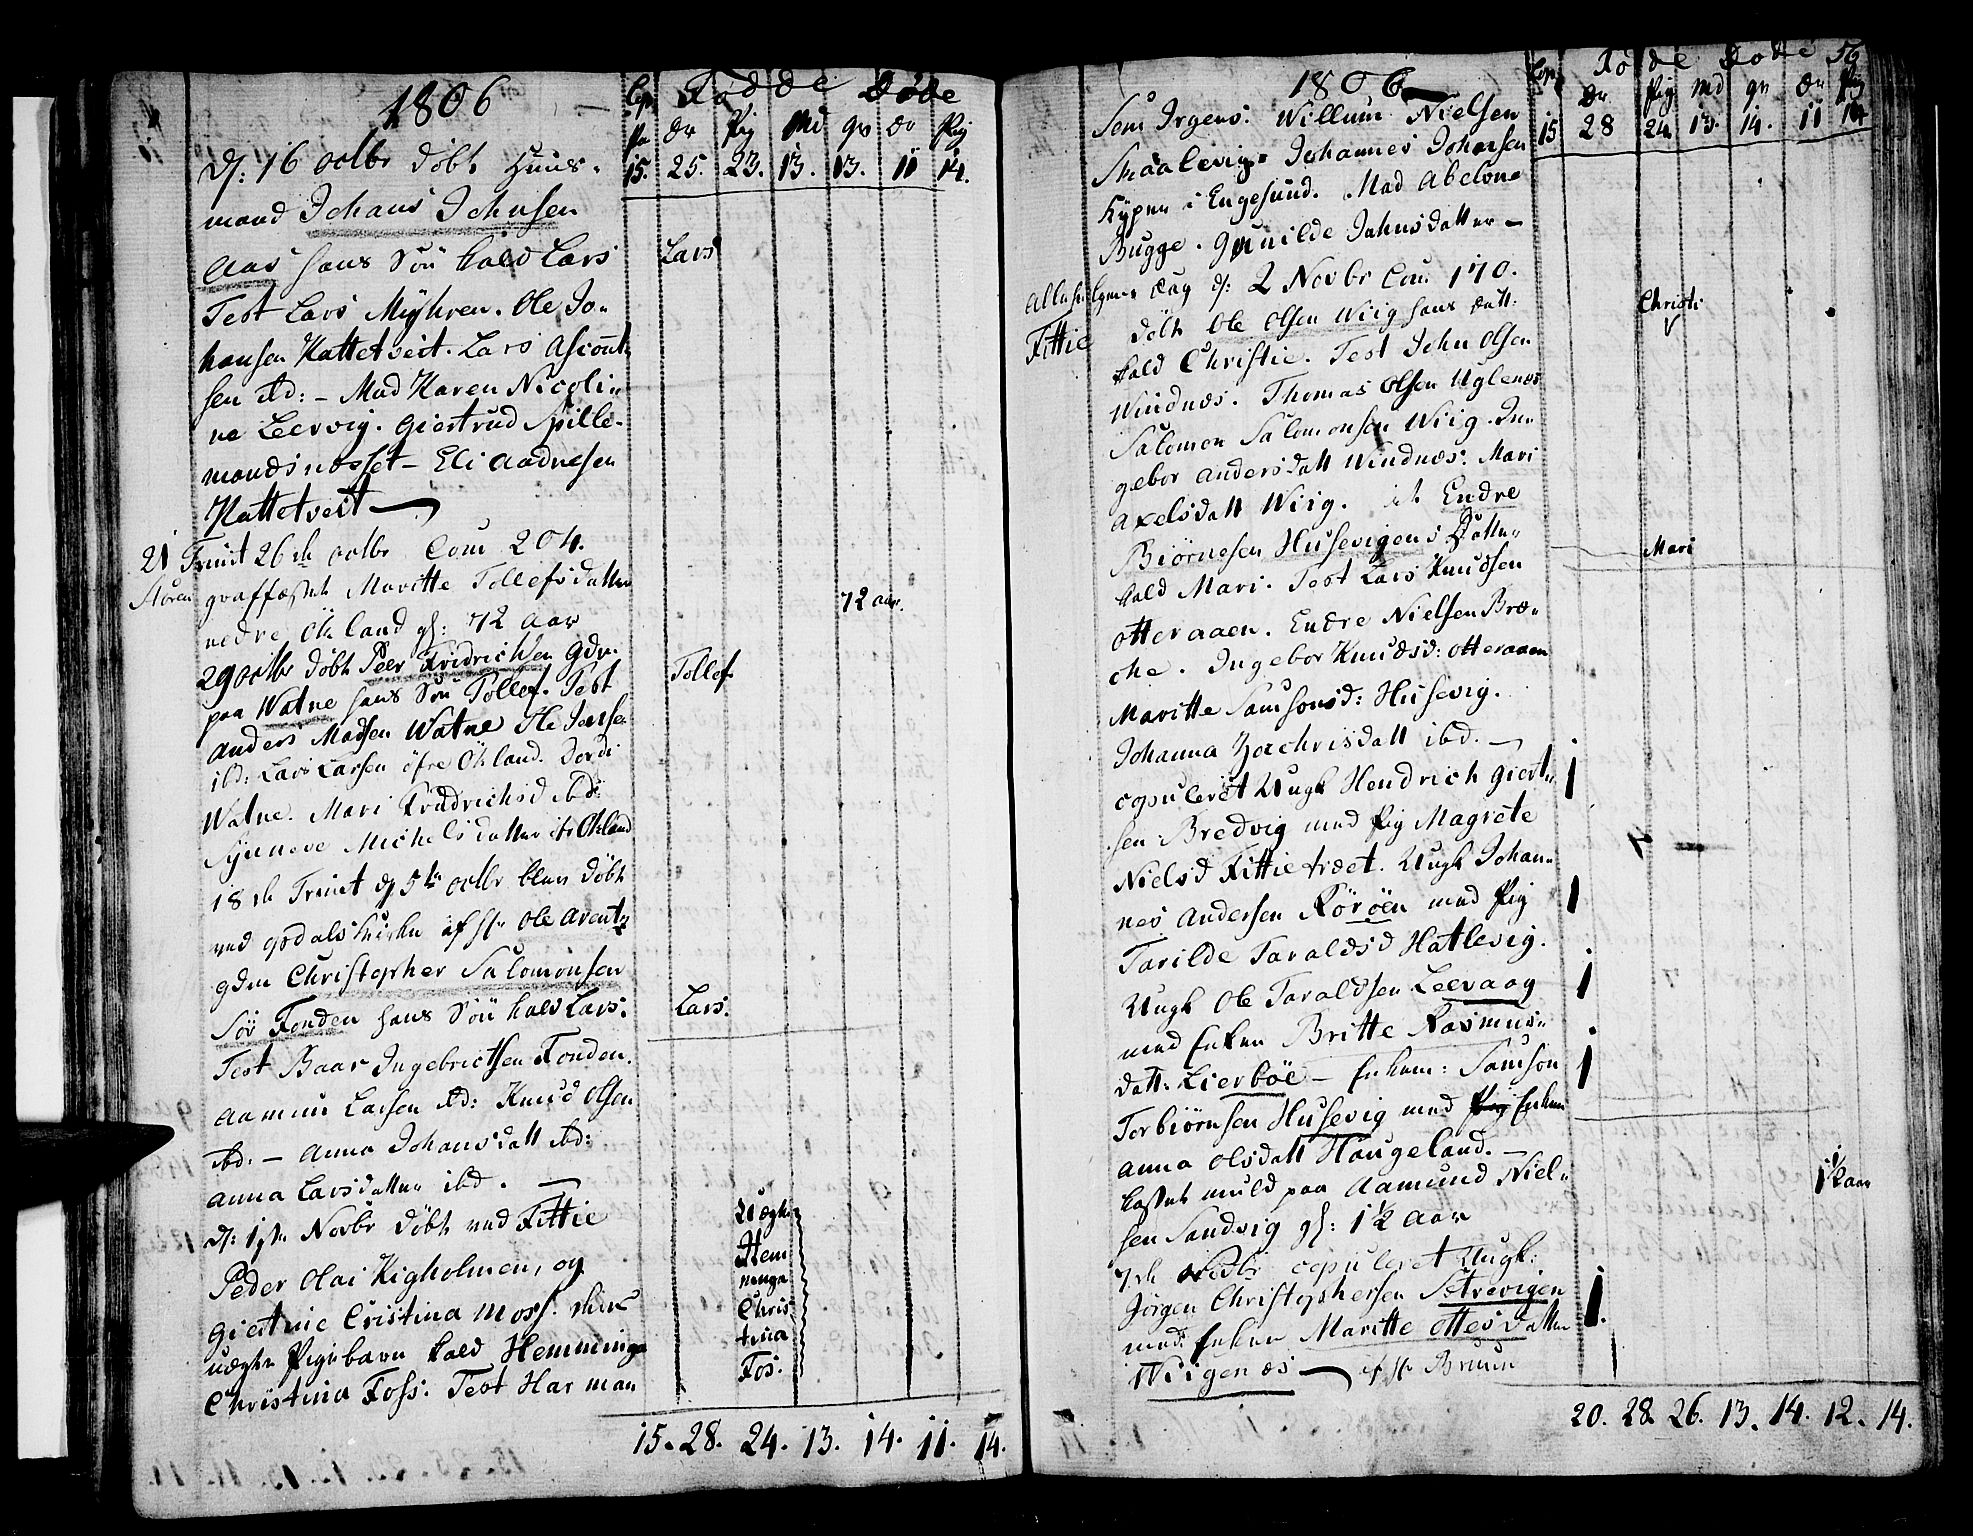 1806
Cop Fødde Døde
Pa Dr Pig Md Qv Dr Pig
15. 25. 23. 13. 13. 11 14.
d: 16 octbr døbt Huus-
mand Johans Johnsen
Aas hans Søn kald Lars
Lars
Test Lars Myhren. Ole Jo-
hansen Kattetveit. Lars
sen ibd: - Mad Karen Nicoli-
ne Leervig. Giertrud Spille-
mandsnesset - Eli Aadnesen
Kattetveit
21 Trinit 26 de octbr Com 204.
Støren graffæstet Maritte Tollefsdatter
72 aar.
nedre Økland gl: 72 Aar
29 octbr døbt Peer Fridrichsen gdm.
Tollef
paa Watne hans Søn Tollef. Test
Anders Madsen Watne Ole Jensen
ibd: Lars Larsen øfre Økland. Dordi
Watne. Mari Fridrichsd ibd:
Synneve Michelsdatter Økland
18 de Trinit d 5te octbr blev døbt
ved Opdals kirke af Hr Ole Arentz
gdm Christopher Salomonsen
Sør Fonden hans Søn kald Lars:
Lars.
Test Baar Ingebrictsen Fonden.
Aamun Larsen ibd: Knud Olsen
ibd: - Anna Johansdatt ibd:
Anna Larsdatter ibd.
d: 1ste Novbr døbt ved Fittie
Peder Olai Kigholmen, og
Giertrue Cristina Moss. deres
uægte Pigebarn kald Hemminga
Christina Foss: Test Harman
Uægte
Hem
minga
Chris
tina
Fos.
15. 28. 24. 13. 14. 11. 14.
1806
56
Cop Fødde Døde
Dr Pig Md Qv Dr Pig
15 28 24. 13. 14. 11 14
Sem Irgens. Willum Nielsen
Smaalevig. Johannes Johansen
Kyper i Engesund. Mad Abelone
Bugge. Gunilde Johnsdatter -
Allehelgens Dag d: 2 Novbr Com 170.
Fittie døbt Ole Olsen Wiig hans datt:
Christi
kald Christie. Test John Olsen
Windnes. Thomas Olsen Uglenes
Salomon Salomonsen Wiig. In-
gebor Andersdatt Windnæs. Mari
Axelsdatt Wiig. it Endre
Biørnesen Husevigens Datter
Mari
kald Mari. Test Lars Knudsen
Otteraaen. Endre Nielsen Bræ-
che. Ingebor Knudsd: Otteraaen
Maritte Samsonsd: Husevig.
Johanna Zachrisdatt ibd. -
copuleret Ungk Hendrich Giert-
sen Bredvig med Pig Magrete
Nielsd Fittietræet. Ungk Johan-
nes Andersen Rörøen med Pig
Tarilde Taraldsd Hatlevig.
Ungk Ole Taraldsen Leevaag
med Enken Britte Rasmus-
datt: Lierbøe - Enkem: Samson
Torbiørnsen Husevig med Enken
Anna Olsdatt Haugeland. -
kastet muld paa Aamund Niel-
1½ aar
sen Sandvig gl: 1½ Aar
7de Novbr copuleret Ungk:
Jørgen Christophersen Setrevigen
med Enken Maritte Ottesdatter
Wiigenæs - af Hr Bruun
20. 28. 26. 13. 14. 12. 14.